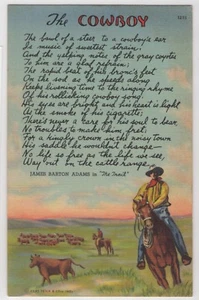 The COWBOY
The bawl of a steer to a cowboy's ear
Is music of sweetest strain;
And the yelping notes of the gray coyotes
To him are a glad refrain;
The rapid beat of his bronc's feet
On the sod as he speeds along
Keeps livening time to the ringing rhyme
Of his rollicking cowboy song.
His eyes are bright and his heart is light
As the smoke of his cigarette,
There's never a care for his soul to bear
No troubles to make him fret.
For a kingly crown in the noisy town
His saddle he wouldn't change —
No life so free as the life we see,
Way out in the cattle range.
JAMES BARTON ADAMS in "The Trail"